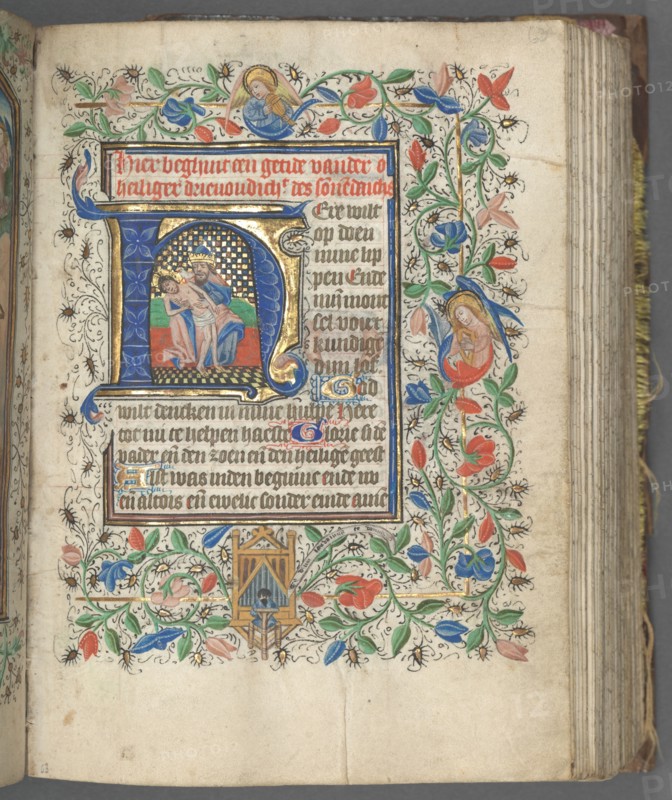 Hier beghint een getide vander
heiliger drievoudich^t des sonnēdaechs
Here wilt
op doen
mine lip
pen Ende
mijn mont
sel voort
kundigē
dijn lof.
God
wilt dencken in mine hulpe Here
tot mi te helpen haeste Glorie si dē
vader eñ den zoen eñ den heilighē geest
Alst was inden beginne ende nv
eñ altois eñ ewelic sonder einde
PHOTO12
PHOTO12
PHOTO12
PHOTO12